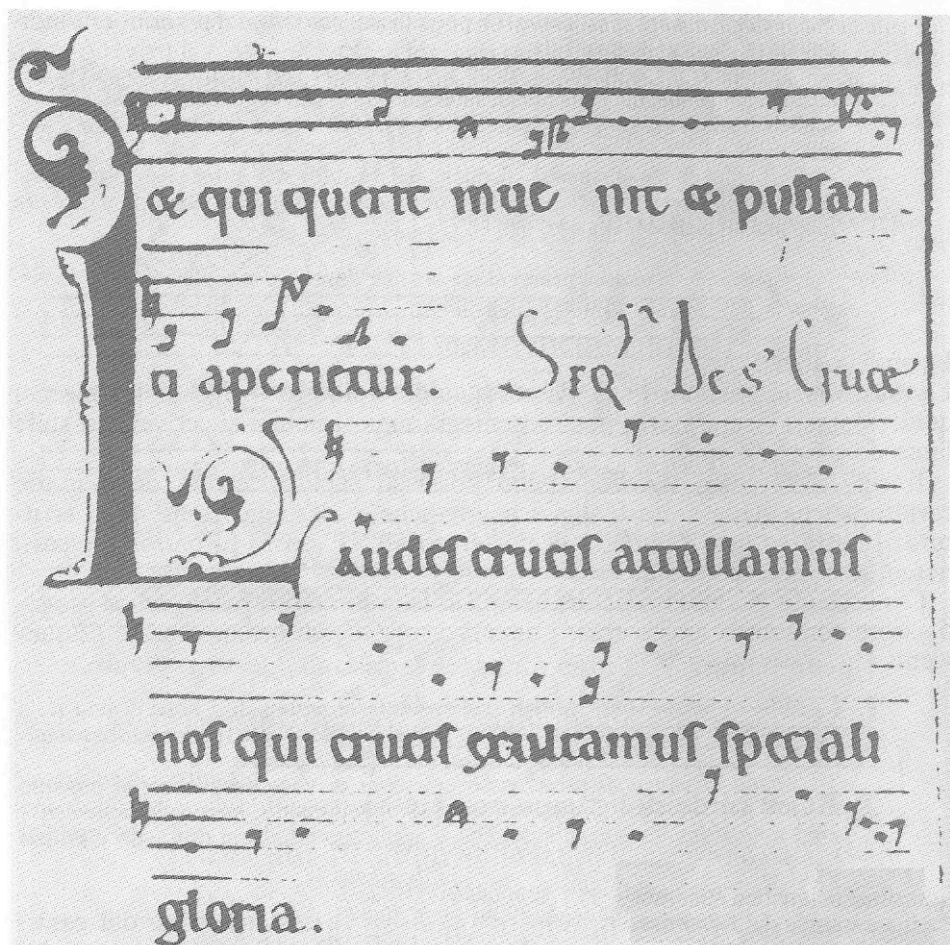 & qui querit inue nit & pulſan
ti aperietur. Seqn De s' Cruce.
Laudeſ cruciſ attollamuſ
noſ qui cruciſ exultamuſ ſpeciali
gloria.